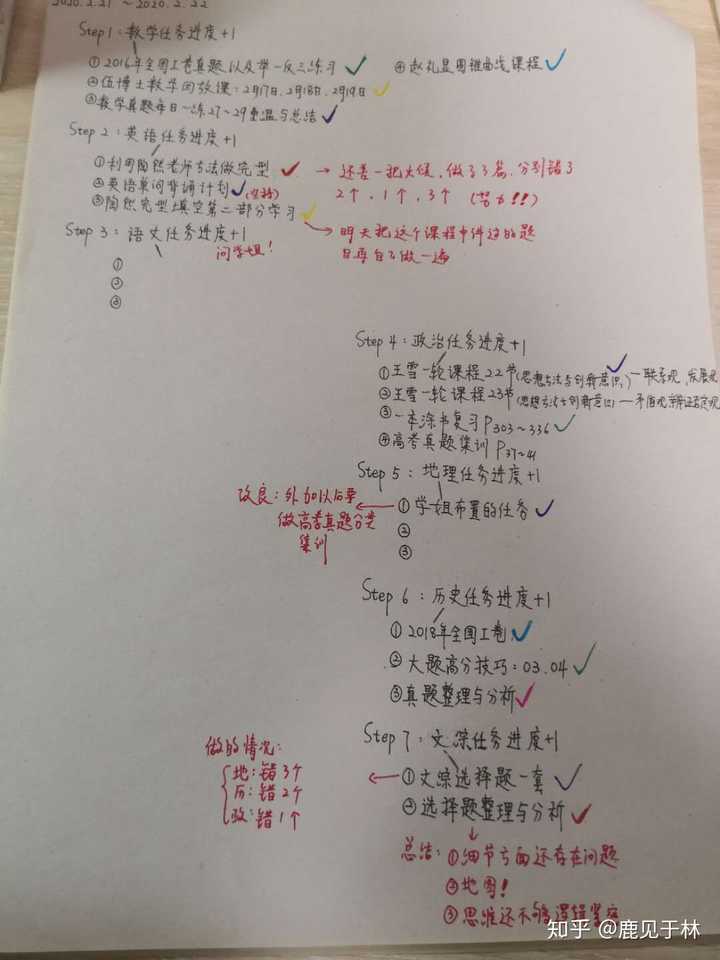 2020.2.21 ~2020.2.22
Step 1：数学任务进度+1
①2016年全国I卷真题以及举一反三练习 ④赵礼显圆锥曲线课程
②伍博士数学回放课：2月17日、2月18日、2月19日
③数学真题每日一练27~29重温与总结
Step 2：英语任务进度+1
①利用陶然老师方法做完型 → 还差一把火候，做了3篇，分别错了
2个，1个，3个 (努力!!)
②英语单词背诵计划(坚持)
③陶然完型填空第二部分学习 → 明天把这个课程中件过的题
目再自己做一遍
Step 3：语文任务进度+1
问学姐！
①
②
③
Step 4：政治任务进度+1
①王雪一轮课程22节(思想方法与创新意识)—联系观，发展观
②王雪一轮课程23节(思想方法与创新意识)—矛盾观，辩证否定观
③一本涂书复习P303~336
④高考真题集训P37~41
Step 5：地理任务进度+1
①学姐布置的任务
改良：外加以后要
做高考真题分类
集训
②
③
Step 6：历史任务进度+1
①2018年全国I卷
②大题高分技巧：03.04
③真题整理与分析
Step 7：文综任务进度+1
①文综选择题一套
做的情况：
地：错3个
历：错2个
政：错1个
②选择题整理与分析
总结：①细节方面还存在问题
②地图！
③思维还不够逻辑紧密
知乎 @鹿见于林